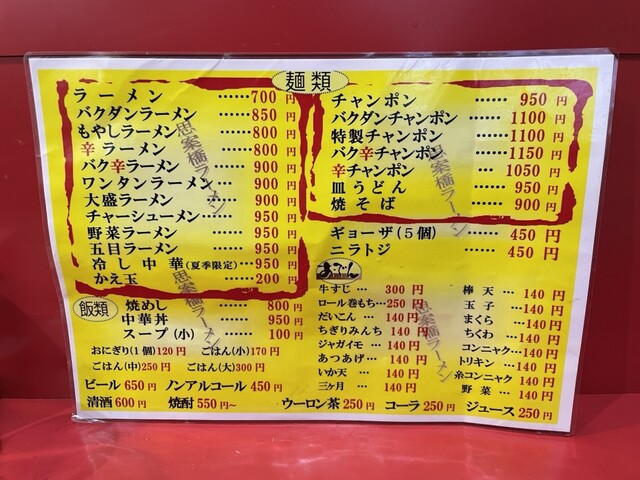 麺類
ラーメン ……700円
バクダンラーメン ……850円
もやしラーメン ……800円
辛ラーメン ……800円
バク辛ラーメン ……900円
ワンタンラーメン… 900円
大盛ラーメン …… 900円
チャーシューメン …… 950円
野菜ラーメン …… 950円
五目ラーメン …… 950円
冷し中華(夏季限定)… 950円
かえ玉 …… 200円
チャンポン …… 950円
バクダンチャンポン …… 1100円
特製チャンポン …… 1100円
バク辛チャンポン … 1150円
辛チャンポン … 1050円
皿うどん …… 950円
焼そば …… 900円
ギョーザ(5個) …… 450円
ニラトジ …… 450円
飯類
焼めし …… 800円
中華丼 …… 950円
スープ(小) …… 100円
おにぎり(1個)120円 ごはん(小)170円
ごはん(中)250円 ごはん(大)300円
おでん
牛すじ … 300円
ロール巻もち…250円
だいこん … 140円
ちぎりみんち 140円
ジャガイモ… 140円
あつあげ… 140円
いか天 … 140円
三ヶ月 … 140円
棒天… 140円
玉子… 140円
まくら… 140円
ちくわ… 140円
コンニャク… 140円
トリキン… 140円
糸コンニャク 140円
野菜… 140円
ビール 650円 ノンアルコール 450円
清酒600円 焼酎 550円~ ウーロン茶 250円 コーラ 250円 ジュース 250円
思案橋ラーメン
思案橋ラーメン
思案橋ラーメン
思案橋ラーメン